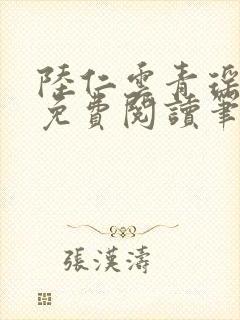 陸仁雲青瑤
免費閱讀筆
張漢濤